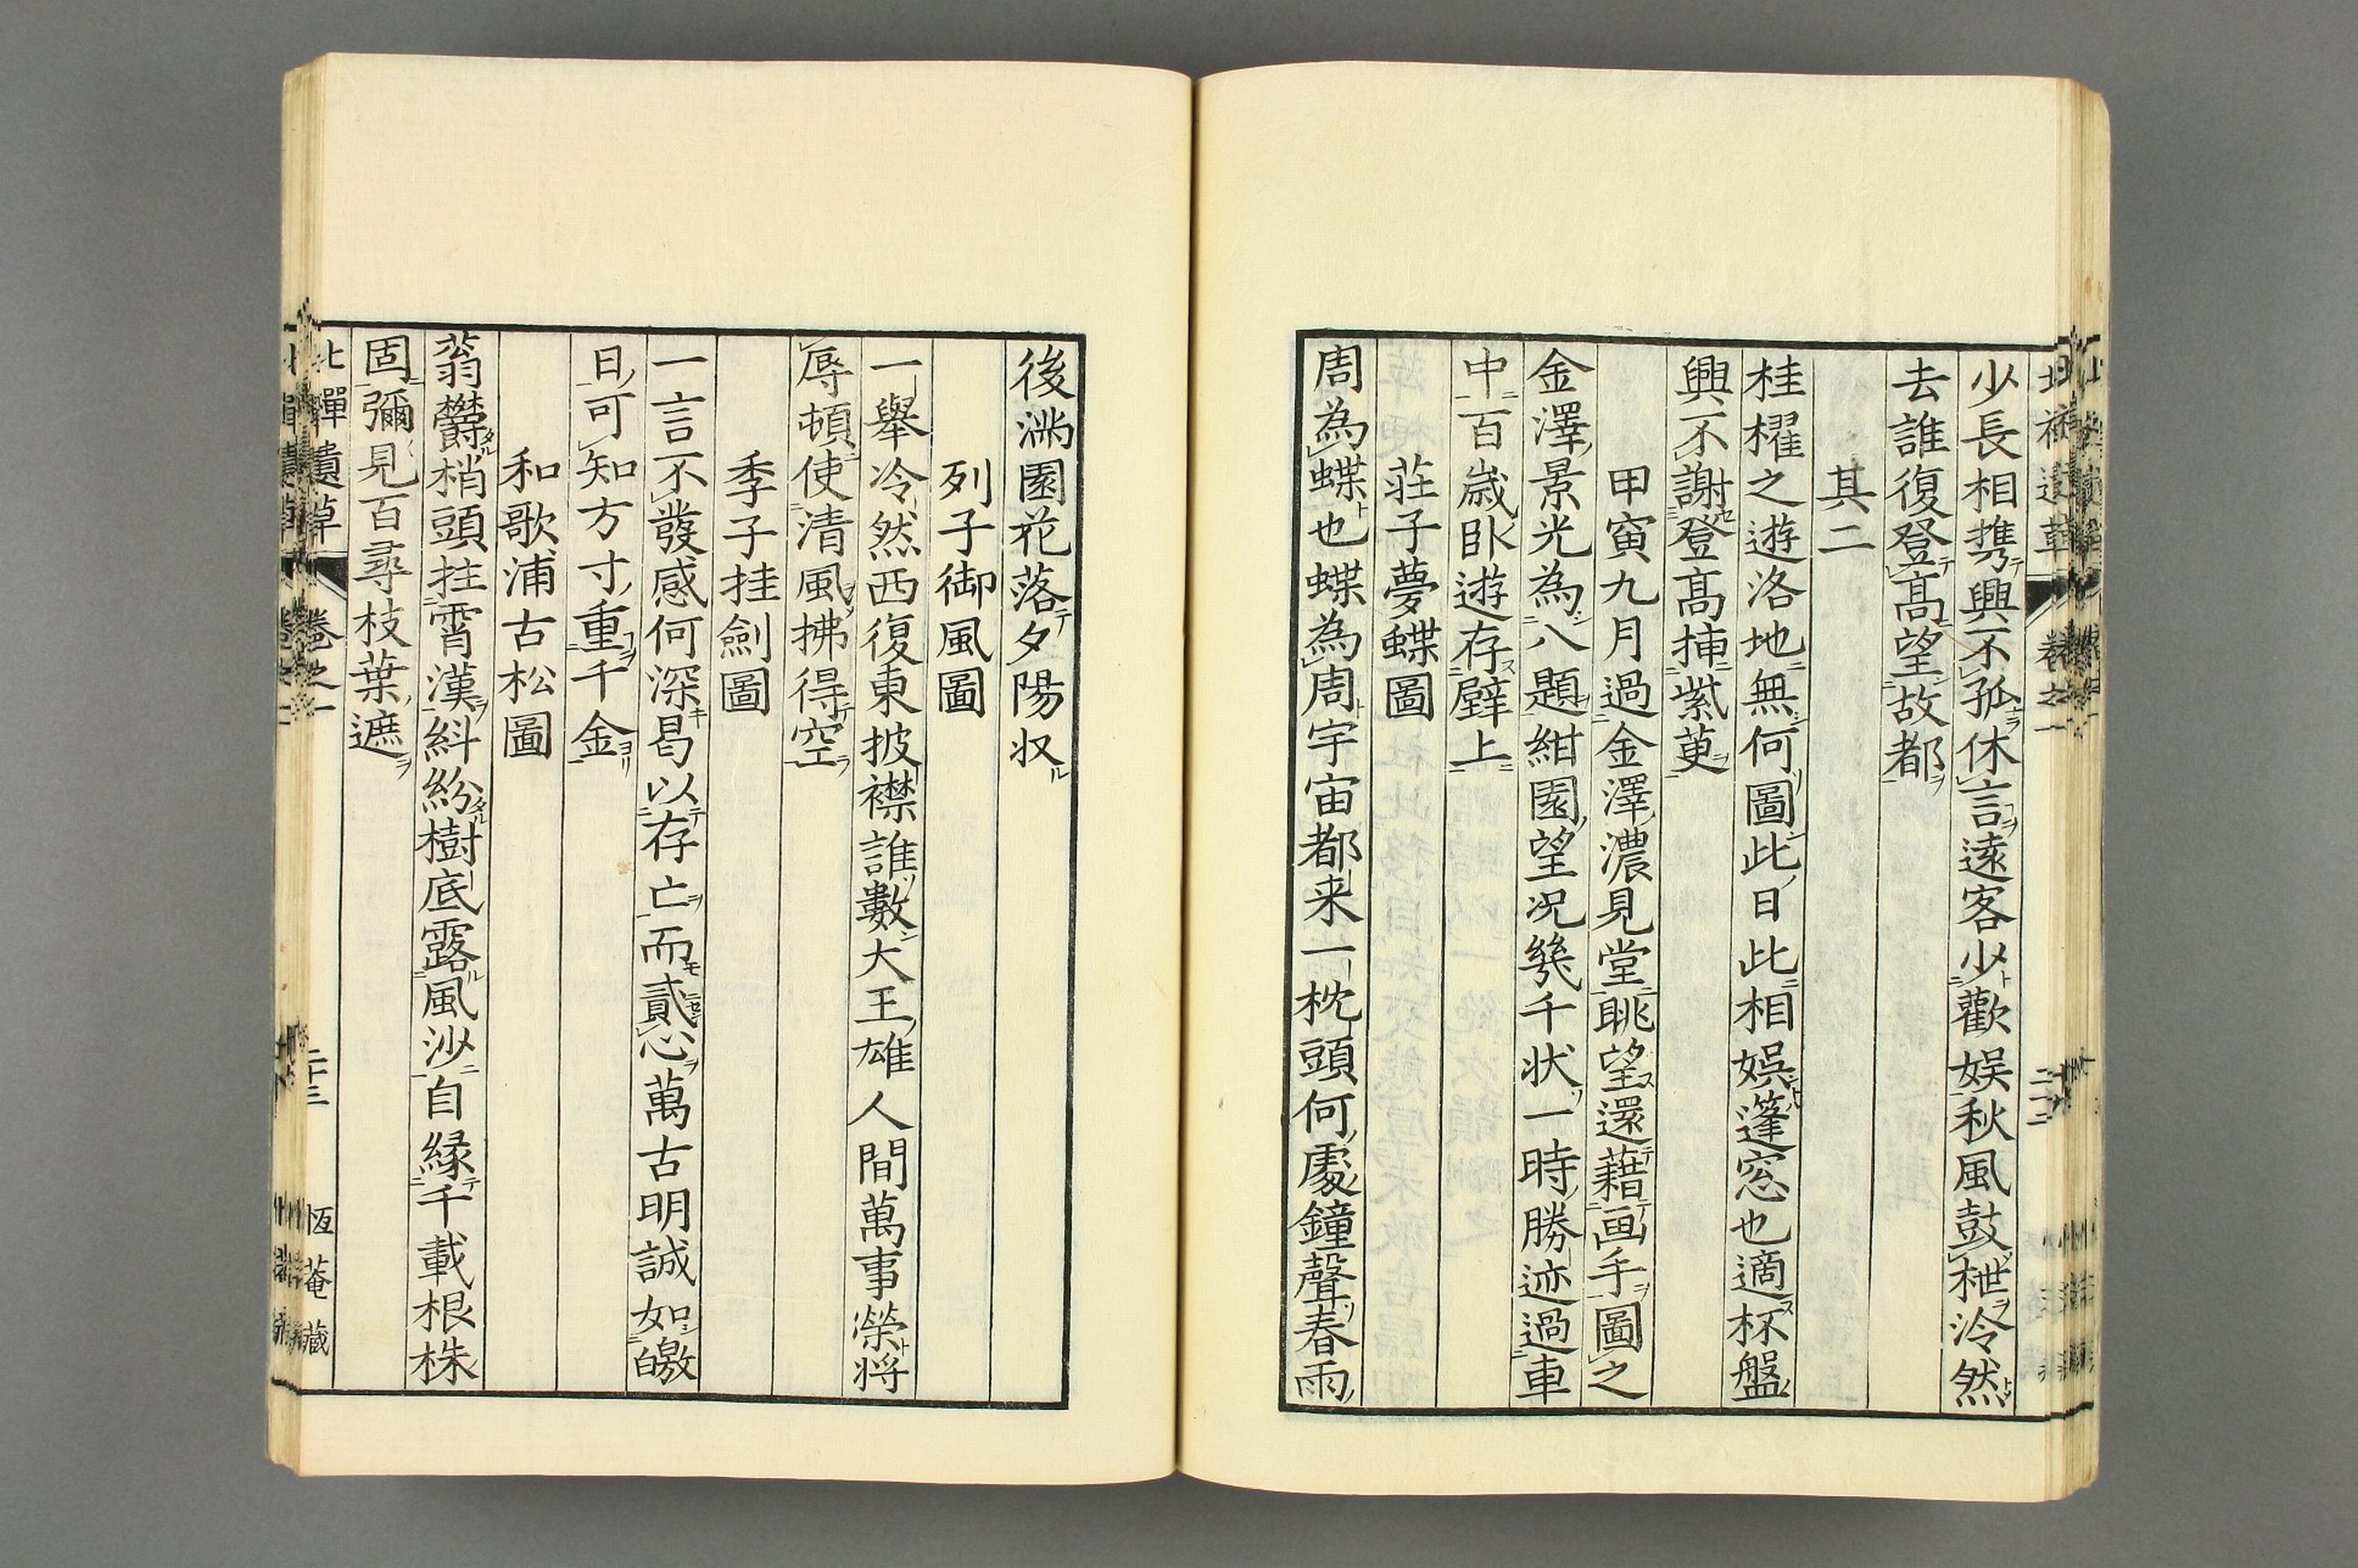 少長相携興不孤休言遠客少歡娯秋風鼓枻泠然
去誰復登髙望故都
其二
桂櫂之遊洛地無何圖此日此相娯篷窓也適杯盤
興不謝登髙挿紫萸
甲寅九月過金澤濃見堂眺望還藉画手圖之
金澤景光為八題紺園望况幾千状一時勝迹過車
中百歳卧遊存壁上
莊子夢蝶圖
周為蝶也蝶為周宇宙都来一枕頭何處鐘聲春雨
後滿園花落夕陽収
列子御風圖
一舉冷然西復東披襟誰數大王雄人間萬事榮将
辱頓使清風拂得空
季子挂劍圖
一言不發感何深曷以存亡而貳心萬古明誠如皦
日可知方寸重千金
和歌浦古松圖
蓊欝梢頭拄霄漢糾紛樹底露風沙自縁千載根株
固彌見百尋枝葉遮
北禪遺草 卷之一 二十三 恆菴藏